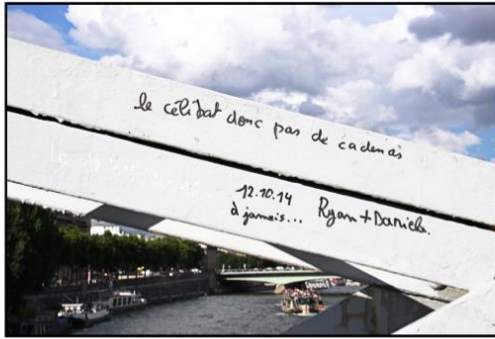 le célibat donc pas de cadenas
12.10.14
à jamais... Ryan + Daniela.